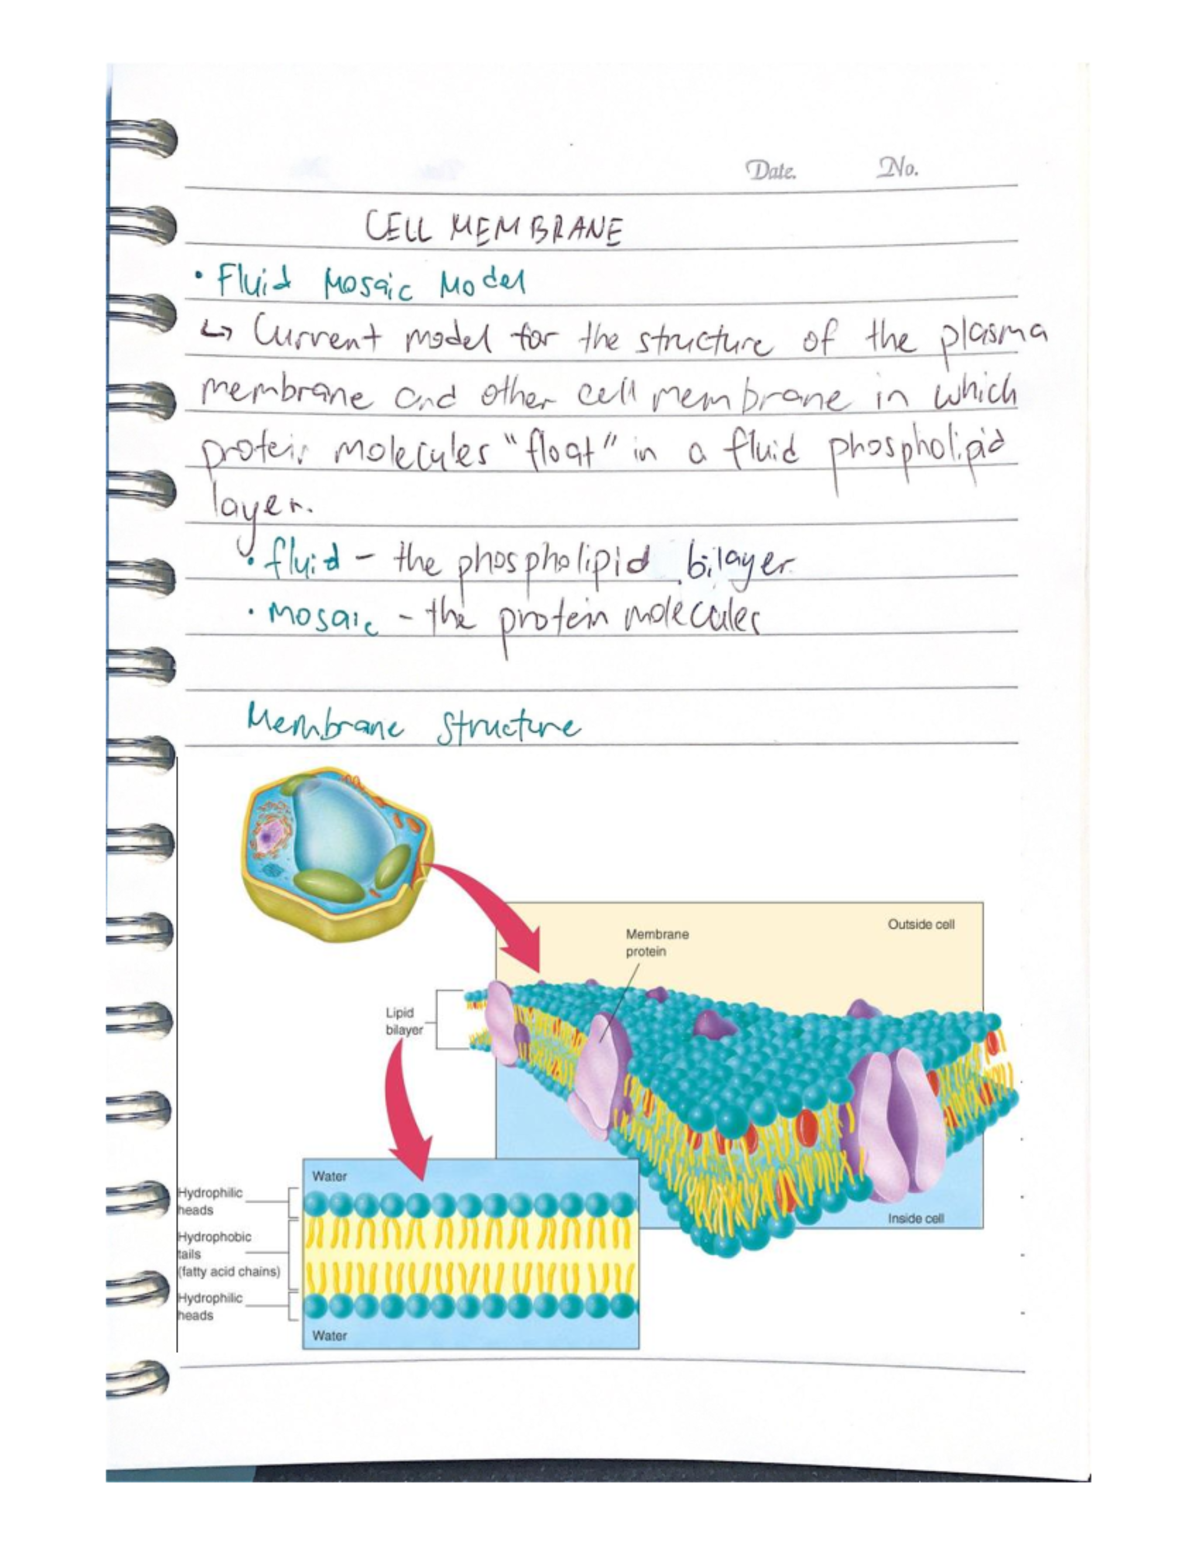 Date. No.
CELL MEMBRANE
• Fluid Mosaic Model
↳ Current model for the structure of the plasma
membrane and other cell membrane in which
protein molecules "float" in a fluid phospholipid
layer.
• fluid - the phospholipid bilayer.
• Mosaic - the protein molecules
Membrane Structure
Outside cell
Membrane
protein
Lipid
bilayer
Water
Hydrophilic
heads
Hydrophobic
tails
(fatty acid chains)
Hydrophilic
heads
Water
Inside cell